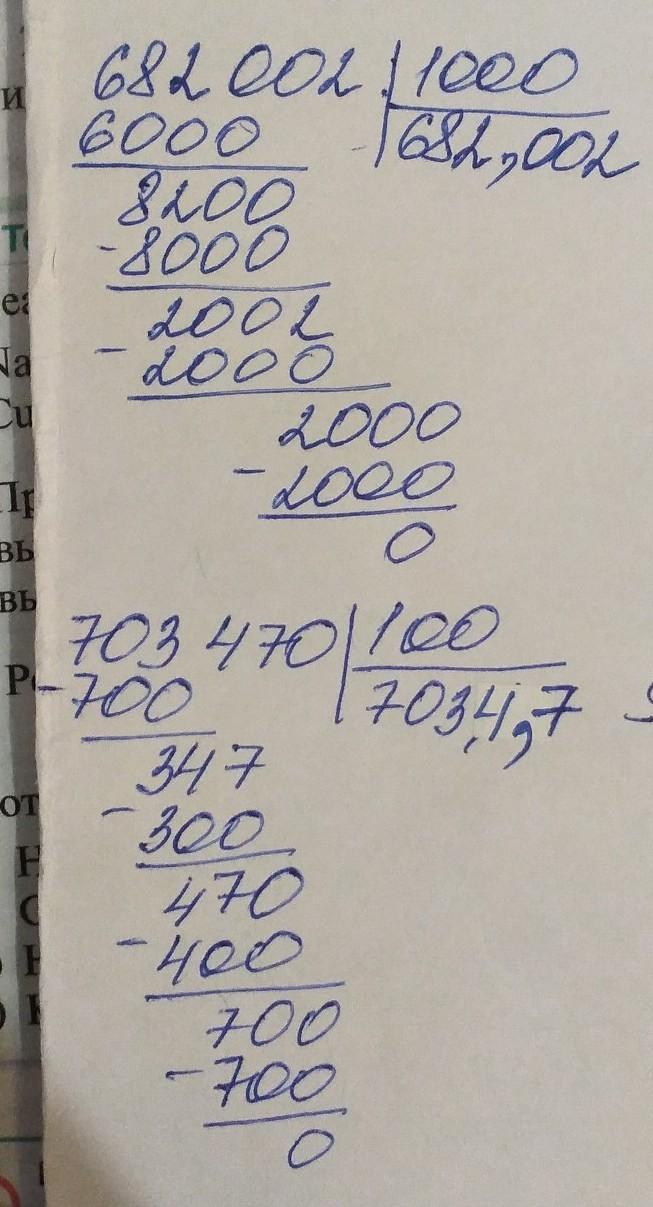 и
Те
еа
Na
Cu
Пр
вы
вы
Ре
от
Н
С
682 002 1000
6000 682,002
8200
-8000
2002
- 2000
2000
- 2000
0
703 470 100
-700 7034,7
347
- 300
470
- 400
700
- 700
0